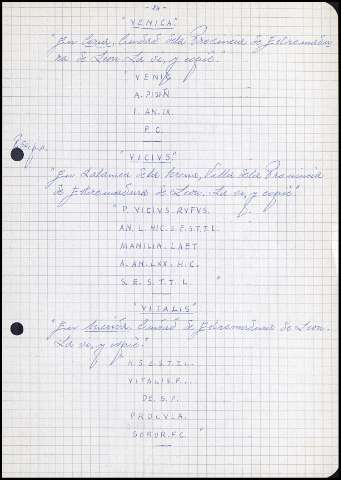 "VENICA"
"En Coria, Ciudad de la Provincia de Extremadu
ra de Leon. La vi, y copié."
"VENIC
A. PISIÑ
F. AN. IX
P. C.
"VICIVS"
"En Zalamea de la Serena, Villa de la Provincia
de Extremadura de Leon. La vi, y copié"
"P. VICIVS. RVFVS.
AN. L. HIC. S. E. S. T. T. L.
MANILIA. LAET
A. AN. LXX. H. C.
S. E. S. T. T. L. "
"VITALIS"
"En Merida, Ciudad de Extremadura de Leon.
La vi, y copié."
"H. S. E. S. T. T. L.
VITALIS. F. ..
DE. S. P.
PROCVLA.
SOROR. F. C. "